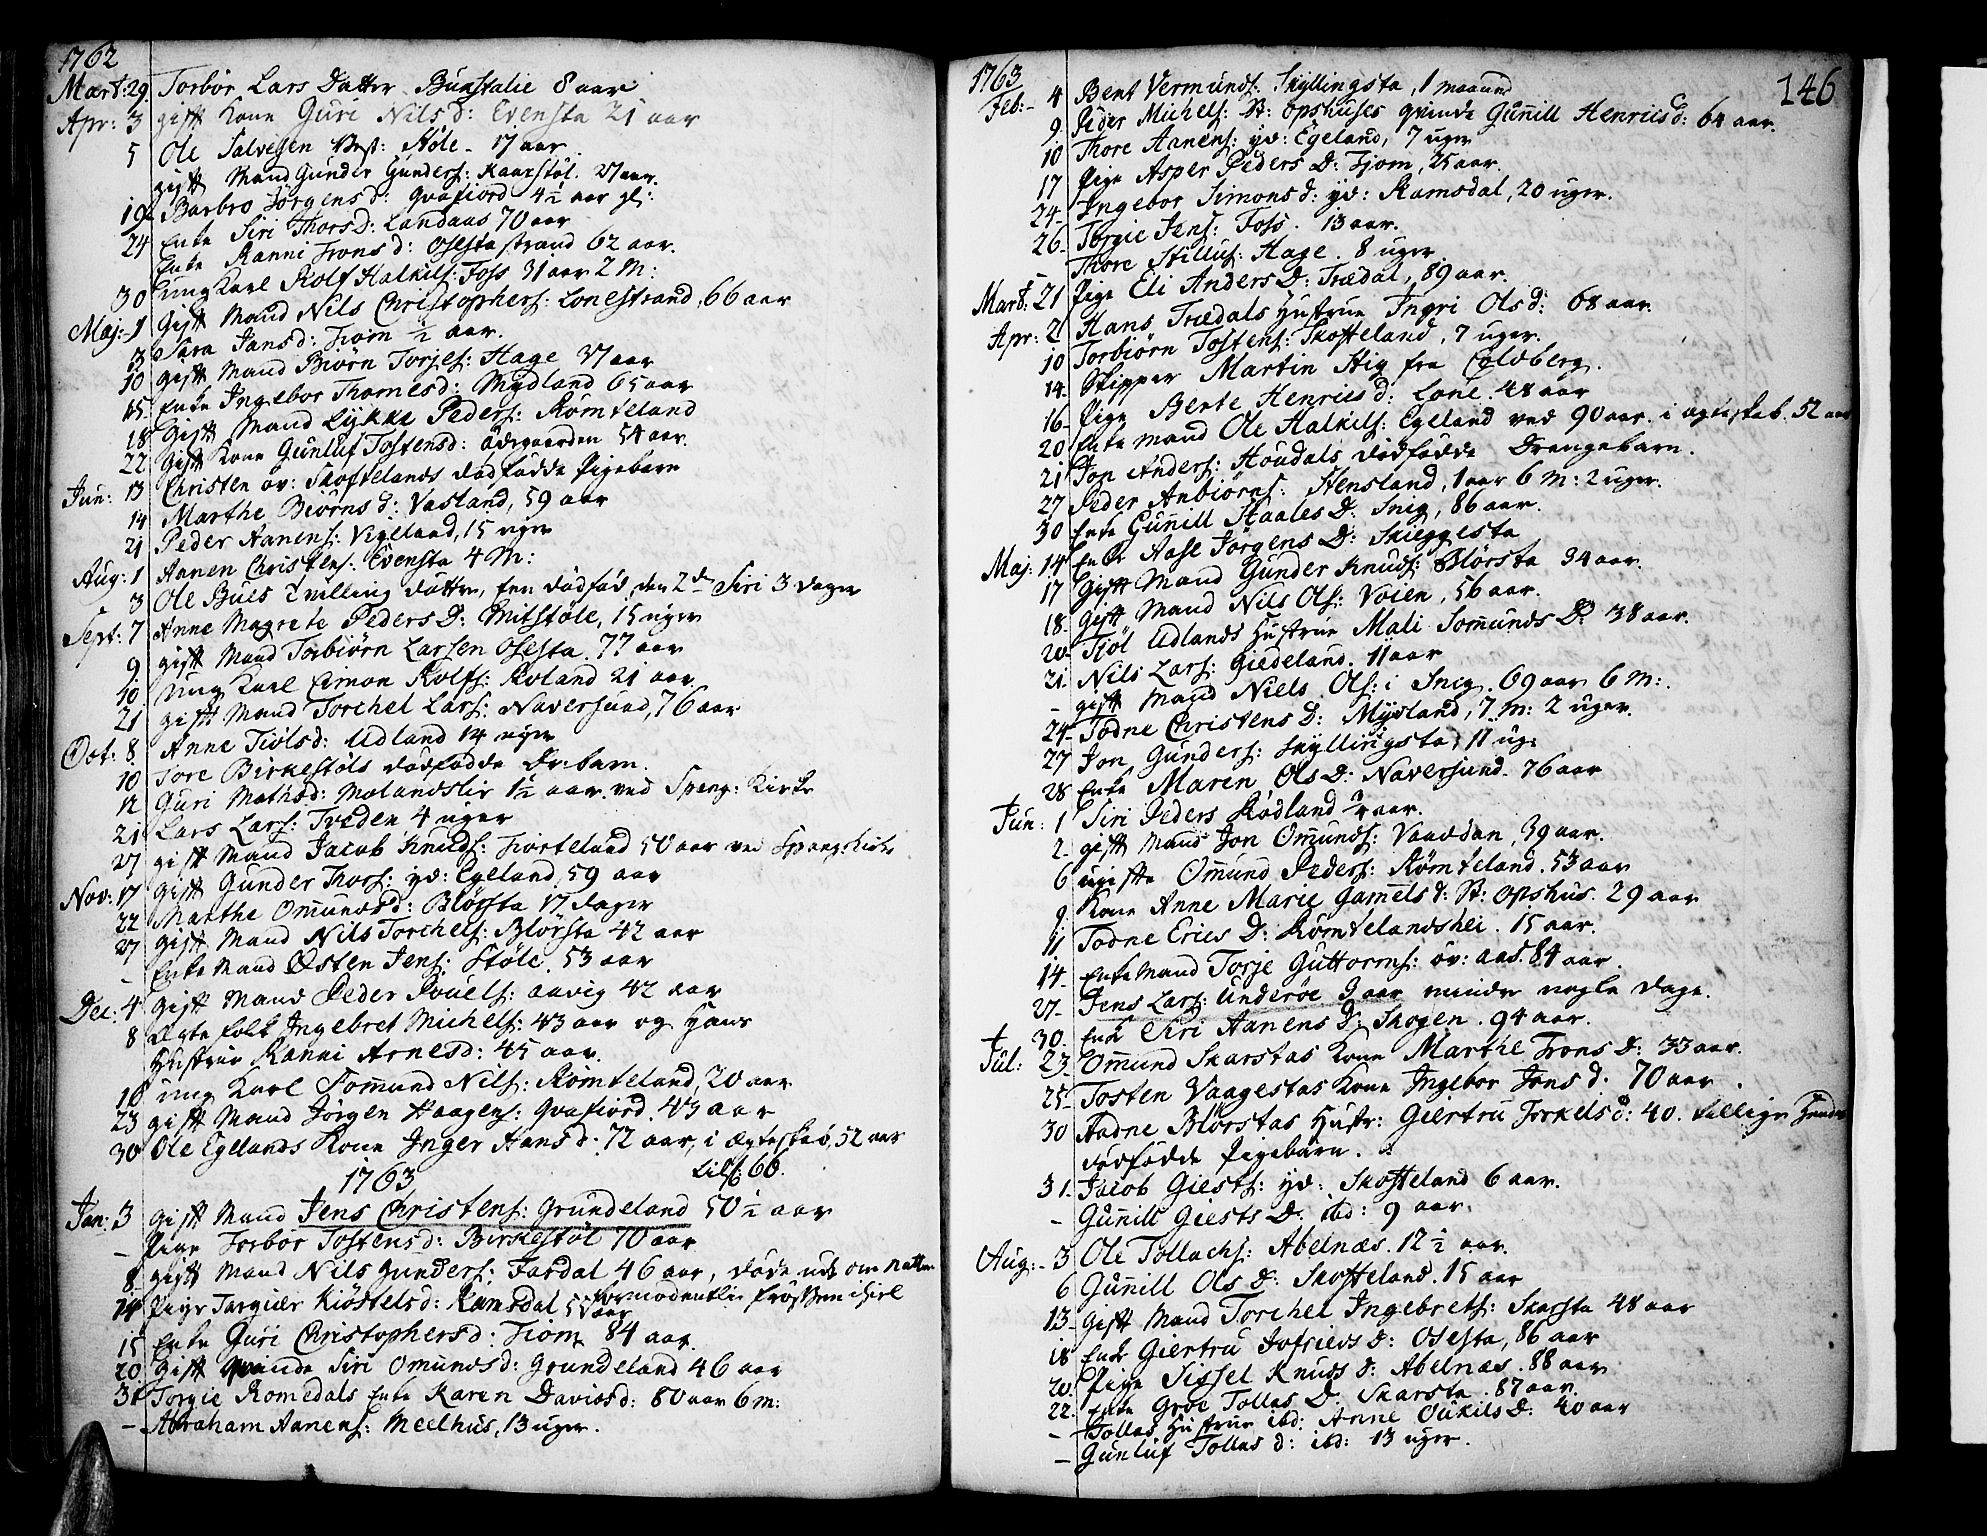 1762
Mart: 29 Torbor Lars Datter Bunstalie 8 aar
Apr: 3 gift Kone Guri Nils d: Evensta 21 aar
5 Ole Salvesen Vest: Støle. 17 aar
gift Mand Gunder Gunders: Kaarstøl. 27 aar.
19 Barbro Jørgens d: qvafiord 4½ aar
24 Enke Siri Thors d: Landaas 70 aar
Enke Ranni Trons d: Osestastrand 62 aar.
30 ung Karl Rolf Halkils: Foss 31 aar 2 M:
Maj: 1 Gift Mand Nils Christophers: Lonestrand, 66 aar
3 Sara Jans d: Fiom ½ aar.
10 gift Mand Biørn Torjes: Hage 37 aar
15 Enke Ingebor Thomes d: Mydland 65 aar
18 Gift Mand Lykke Peders: Rømteland
22 Gift Kone Gunluf Tostens d: ødegaarden 54 aar.
Jun: 13 Christen øv: Skoftelands dødfødde Pigebarn
14 Marthe Biørns d: Vasland, 59 aar
21 Peder Aanens: Vigeland, 15 uger
Aug: 1 Aanen Christens: Evensta 4 M:
3 Ole Bues Tvilling døttre, een dødfød, den 2de Siri 3 dager
Sept: 7 Anne Magrete Peders D: Mitstøle, 15 uger
9 gift Mand Torbiørn Larsen Osesta. 77 aar
10 ung Karl Simon Rolfs: Roland 21 aar
21 gift Mand Torchel Lars: Naversund, 76 aar
Oct: 8 Anne Tiøls d: Udland 14 uger
10 Tore Birkestøls dødfødde Dr: barn.
12 Guri Mathis d: Molandslie 1½ aar. ved Spang: Kirke
21 Lars Lars: Treden 4 uger
27 gift Mand Jacob Knuds: Fiorteland 50 aar ved Spang: Kirke
Nov: 17 Gift Gunder Thors: yd: Egeland, 59 aar
22 Marthe Omunds d: Blørsta 17 dager
27 gift Mand Nils Torchels: Blørsta 42 aar
– Enke Mand Østen Jens: Støle. 53 aar
Dec: 4 gift Mand Peder Povels: aavig 42 aar
8 Ægtefolk Ingebret Michels: 43 aar og Hans
Hustrue Ranni Arnes d: 45 aar.
10 ung Karl Tomund Nils: Rømteland, 20 aar
23 gift Mand Jørgen Haagens: qvafiord. 43 aar
30 Ole Egelands Kone Inger Hans d: 72 aar, i Ægteskab, 52 aar
1763 66.
Jan: 3 gift Mand Jens Christens: Grundeland 50½ aar
– Pige Torbor Tostens d: Birkestøl 70 aar
8 gift Mand Nils Gunders: Jardal 46 aar, døde ude om natten
formodentlig
14 Pige Targier Kiøstels d: Ramsdal 55 aar
15 Enke Guri Christophers d: Fiom 84 aar.
20 Gift qvinde Siri Omunds d: Grundeland 46 aar
31 Torgie Romedals Enke Karen Davids d: 80 aar 6 m:
– Abraham Aanens: Meelhus, 13 uger.
1763 146
Feb: 4 Bent Vermunds: Skyllingsta, 1 maaned
9 Peder Michels: St: Opshuses qvinde Gunill Henrics d: 64 aar.
10 Thore Aanens: yd: Egeland, 7 uger
17 Pige Asper Peders D: Fjom, 25 aar.
24 Ingebor Simons d: yd: Ramsdal, 20 uger.
26 Torgie Jens: Foss. 13 aar.
– Thore Stillus: Hage. 8 uger
Mart: 21 Pige Eli Anders D: Trædal, 89 aar.
Apr: 2 Hans Trædals Hustrue Ingri Ols d: 68 aar.
10 Torbiørn Tostens: Skofteland, 7 uger.
14 Skipper Martin Stig fra Coldberg.
16 Pige Berte Henrics d: Lone. 48 aar
20 Enke mand Ole Halkils: Egeland ved 90 aar. i ægteskab. 52 aar
21 Jon Anders: Houdals dødfødde Drengebarn.
27 Peder Anbiørns: Stensland, 1 aar 6 M: 2 uger.
30 Enke Gunill Staales D: Snig, 86 aar.
Maj: 14 Enke Aase Jørgens D: Skieggesta
17 Gift Mand Gunder Knuds: Blørsta 34 aar.
18 Gift Mand Nils Ols: Voien, 56 aar.
20 Tiøl Udlands Hustrue Mali Tomunds D: 38 aar.
21 Nils Lars: Giedeland. 11 aar
– gift Mand Niels Ols: i Snig. 69 aar 6 M:
24 Todne Christens D: Mydland, 7 M: 2 uger.
27 Jon Gunders: Skyllingsta, 11 ug:
28 Enke Maren Ols D: Naversund. 76 aar
Jun: 1 Siri Peders Rødland aar.
2 gift Mand Jon Omunds: Vaardan, 39 aar.
6 ugifte Omund Peders: Rømteland. 53 aar
9 Kone Anne Marie Gamels d: St: Opshus. 29 aar
11 Todne Erics D: Rømtelandshei. 15 aar.
14 Enke mand Torje Guttorms: øv: aas. 84 aar.
27 Jens Lars: Underøe 9 aar mindre nogle dage.
30 Enke Siri Aanens D: Skogen. 94 aar.
Jul: 23 Omund Skarstas Kone Marthe Trons D: 33 aar.
25 Tosten Vaagestas Kone Ingebor Jons d: 70 aar.
30 Aadne Blørstas Hustr: Giertru Torkels d: 40.
dødfødde Pigebarn.
31 Jacob Giests: yd: Skofteland 6 aar.
– Gunill Giests D: ibd: 9 aar.
Aug: 3 Ole Tollachs: Abelnæs. 12½ aar.
6 Gunill Ols D: Skofteland. 15 aar
13 Gift Mand Torchel Ingebrets: Skarsta 48 aar
18 Enke Giertru Jofrieds d: Osesta, 86 aar
20 Pige Sissel Knuds d: Abelnæs. 88 aar
22 Enke Groe Tolles D: Skarsta. 87 aar.
– Tolles Hustrue ibd: Anne Oukils D: 40 aar
– Gunluf Tolles d: ibd: 13 uger.